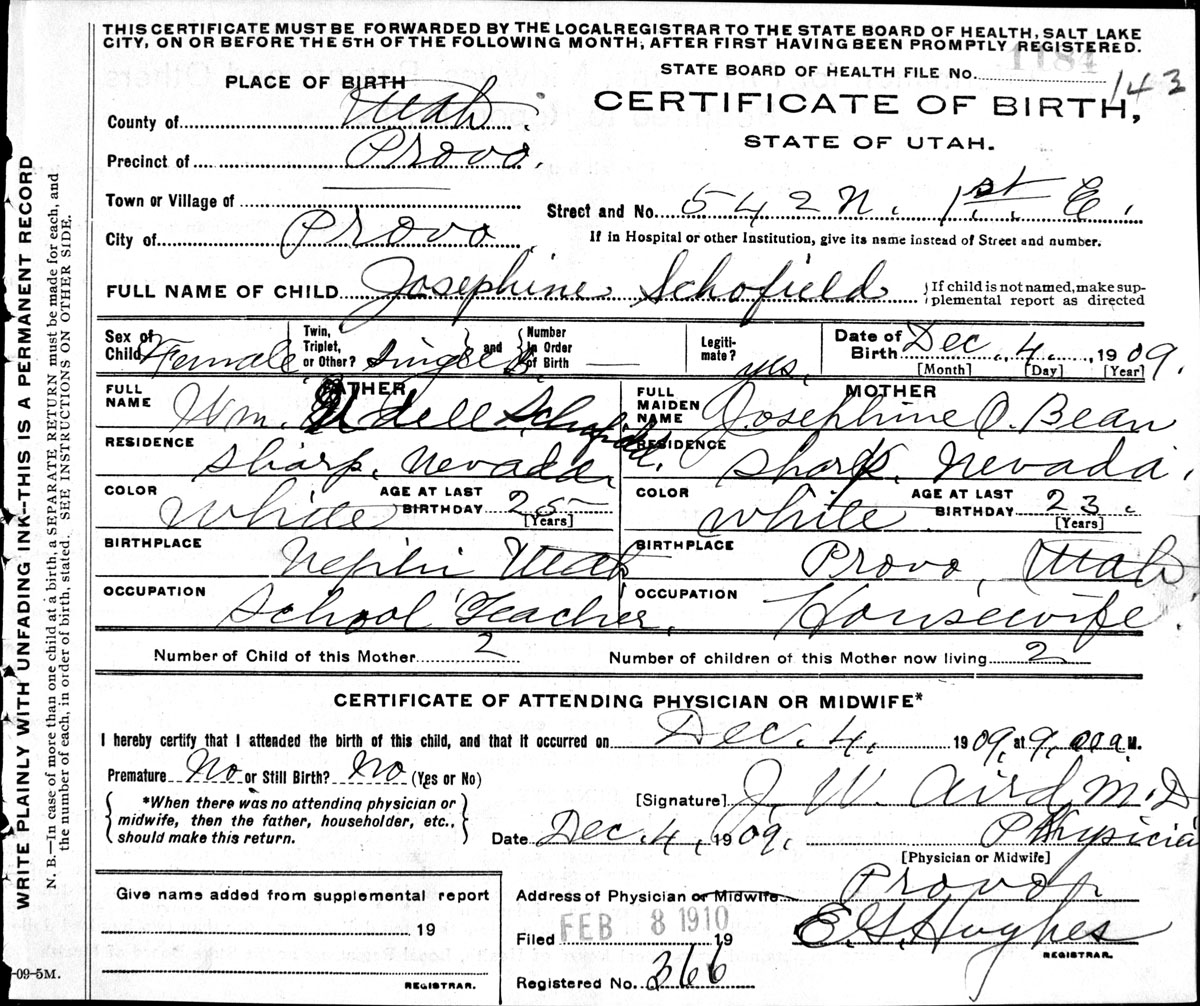 THIS CERTIFICATE MUST BE FORWARDED BY THE LOCAL REGISTRAR TO THE STATE BOARD OF HEALTH, SALT LAKE
CITY, ON OR BEFORE THE 5TH OF THE FOLLOWING MONTH, AFTER FIRST HAVING BEEN PROMPTLY REGISTERED.
1184
STATE BOARD OF HEALTH FILE No. 143
PLACE OF BIRTH
CERTIFICATE OF BIRTH,
STATE OF UTAH.
County of Utah
Precinct of Provo.
Town or Village of
Street and No. 542 N. 1st. E.
City of Provo
If in Hospital or other Institution, give its name instead of Street and number.
FULL NAME OF CHILD Josephine Schofield
If child is not named, make supplemental report as directed
Sex of Child Female
Twin, Triplet, or Other? Single
and Number in Order of Birth —
Legitimate? yes.
Date of Birth Dec. 4. 1909.
[Month] [Day] [Year]
FATHER
FULL NAME Wm. Udell Schofield.
RESIDENCE Sharp. Nevada
COLOR White
AGE AT LAST BIRTHDAY 25
[Years]
BIRTHPLACE Nephi Utah
OCCUPATION School Teacher.
MOTHER
FULL MAIDEN NAME Josephine O. Bean
RESIDENCE Sharp. Nevada.
COLOR White
AGE AT LAST BIRTHDAY 23.
[Years]
BIRTHPLACE Provo, Utah
OCCUPATION Housewife.
Number of Child of this Mother 2
Number of children of this Mother now living 2
CERTIFICATE OF ATTENDING PHYSICIAN OR MIDWIFE*
I hereby certify that I attended the birth of this child, and that it occurred on Dec. 4. 1909, at 9. a. M.
Premature No or Still Birth? No (Yes or No)
*When there was no attending physician or
midwife, then the father, householder, etc.,
should make this return.
[Signature] J. W. Aird M.D
Date Dec. 4, 1909. Physicia
[Physician or Midwife]
Give name added from supplemental report
19
REGISTRAR.
Address of Physician or Midwife Provo
Filed FEB 8 1910 19
E. G. Hughes
REGISTRAR.
Registered No. 366
-09-5M.
WRITE PLAINLY WITH UNFADING INK--THIS IS A PERMANENT RECORD
N. B.—In case of more than one child at a birth, a SEPARATE RETURN must be made for each, and
the number of each, in order of birth, stated. SEE INSTRUCTIONS ON OTHER SIDE.